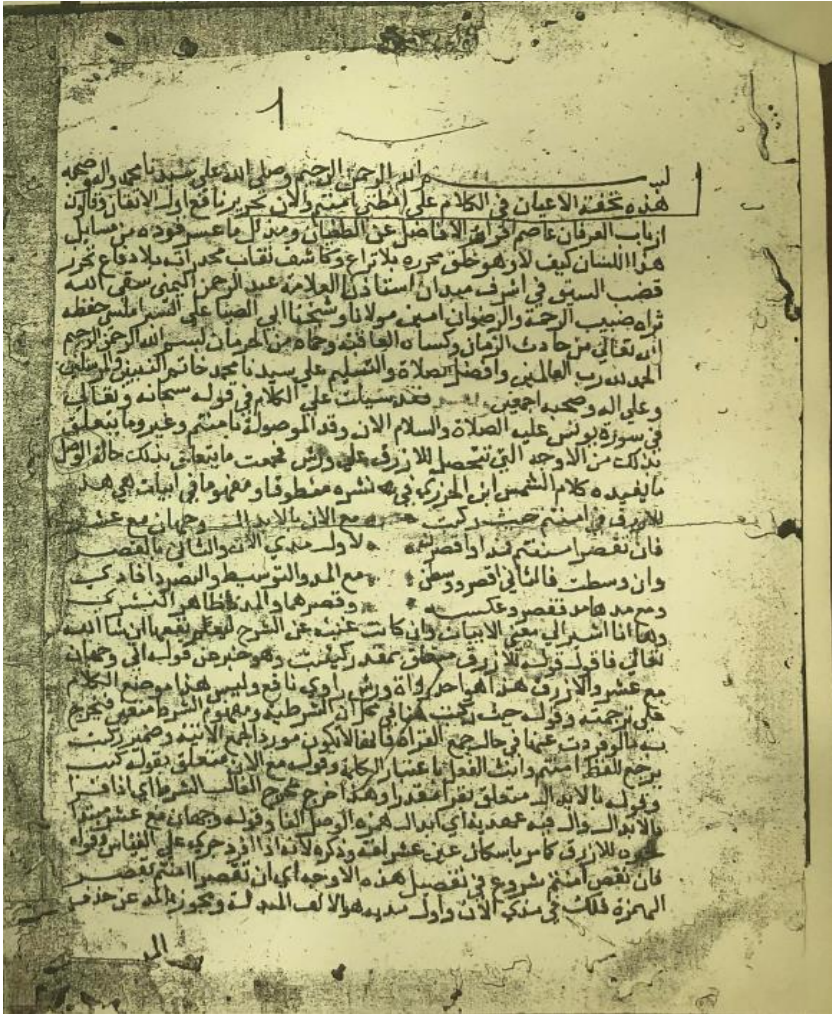 ١
بسم الله الرحمن الرحيم وصلى الله على سيدنا محمد واله وصحبه
هذه تحفة الاعيان في الكلام على لفظتي امنتم والان تحرير نافع اولي الاتقان وقانون
ارباب العرفان عاصم افواه الافاضل عن الطغيان ومذلل ما عسر قوده من مسايل
هذا اللسان كيف لا وهو خلق محرره بلا نزاع وكاشف نقاب مخدراته بلا دفاع محرر
قضب السبق في اشرف ميدان استاذنا العلامة عبد الرحمن اليمني سقى الله
ثراه صبيب الرحمة والرضوان امين مولانا وشيخنا ابي الضيا على الشبراملسي حفظه
الله تعالى من حادث الزمان وكساه العافية وحماه من الحرمان بسم الله الرحمن الرحيم
الحمد لله رب العالمين وافضل الصلاة والتسليم على سيدنا محمد خاتم النبيين والمرسلين
وعلى اله وصحبه اجمعين فقد سيلت على الكلام في قوله سبحانه وتعالى
في سورة يونس عليه الصلاة والسلام الان وقد الموصولة بامنتم وغيره وما يتعلق
بذلك من الاوجه التي تتحصل للازرق على ورش فجمعت ما يتعلق بذلك حالة الوصل
ما يفيده كلام الشمس ابن الجزري في نشره منطوقا ومفهوما في ابيات هي هذه
للازرق في امنتم حيث ركبت مع الان بالابدال وجهان مع عشر
فان تقصر امنتم فمد او اقصرن لاول مدي الان والثاني بالقصر
وان وسطت فالثاني اقصر ووسطن مع المد والتوسيط والقصر ذا فادر
ومع مدها مد فقصر وعكسه وقصرهما والمد ظاهر النشر
وها انا اشير الى معنى الابيات وان كانت غنية عن الشرح ليعم نفعها ان شا الله
تعالى فاقول قوله للازرق متعلق بمقدر وهو خبر عن قوله اتى وجهان
مع عشر والازرق هذا هو احد رواة ورش راوي نافع وليس هذا موضع الكلام
على ترجمته وقوله حيث ركبت هنا في محل ان الشرطية ومفهوم الشرط معتبر فيخرج
به ما لو افردت عنها في حال جمع القراة فانها لا يكون مورد الجمع الاتية وضمير ركبت
يرجع للفظ امنتم وانث الفعل باعتبار الكلمة وقوله مع الان متعلق بقوله ركبت
وقوله بالابدال متعلق بتقرا مقدرا وهذا خرج مخرج الغالب الشرط اي اذا قرا
بالابدال وال فيه عهدية اي ابدال همزة الوصل الفا وقوله وجهان مع عشر مبتدا
خبره للازرق كما مر باسكان عين عشر لغة وذكره لانه اذا افرد جرى على القياس وقوله
فان تقصر امنتم شروع في تفصيل هذه الاوجه اي ان تقصر امنتم بقصر
الهمزة فلك في مدي الان واول مديه هو الالف المبدلة ويجوز بالمد عن حذف
المد